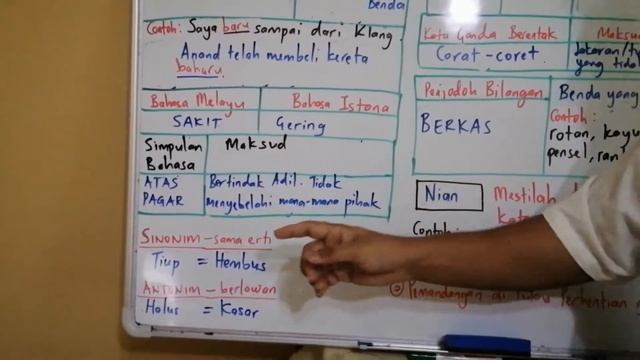 Benda
Contoh: Saya baru sampai dari Klang.
Anand telah membeli kereta
baharu.
Bahasa Melayu
Bahasa Istana
SAKIT
Gering
Simpulan
Bahasa
Maksud
ATAS
PAGAR
Bertindak Adil. Tidak
menyebelahi mana-mana pihak
SINONIM - sama erti
Tiup = Hembus
ANTONIM - berlawan
Halus = Kasar
Kata Ganda Berentak
Maksud
Corat-coret
yang tidak
Penjodoh Bilangan
Benda yang
BERKAS
Contoh:
rotan, kayu
pensel,
Nian
Mestilah
Contoh:
Pemandangan di Pulau Perhentian